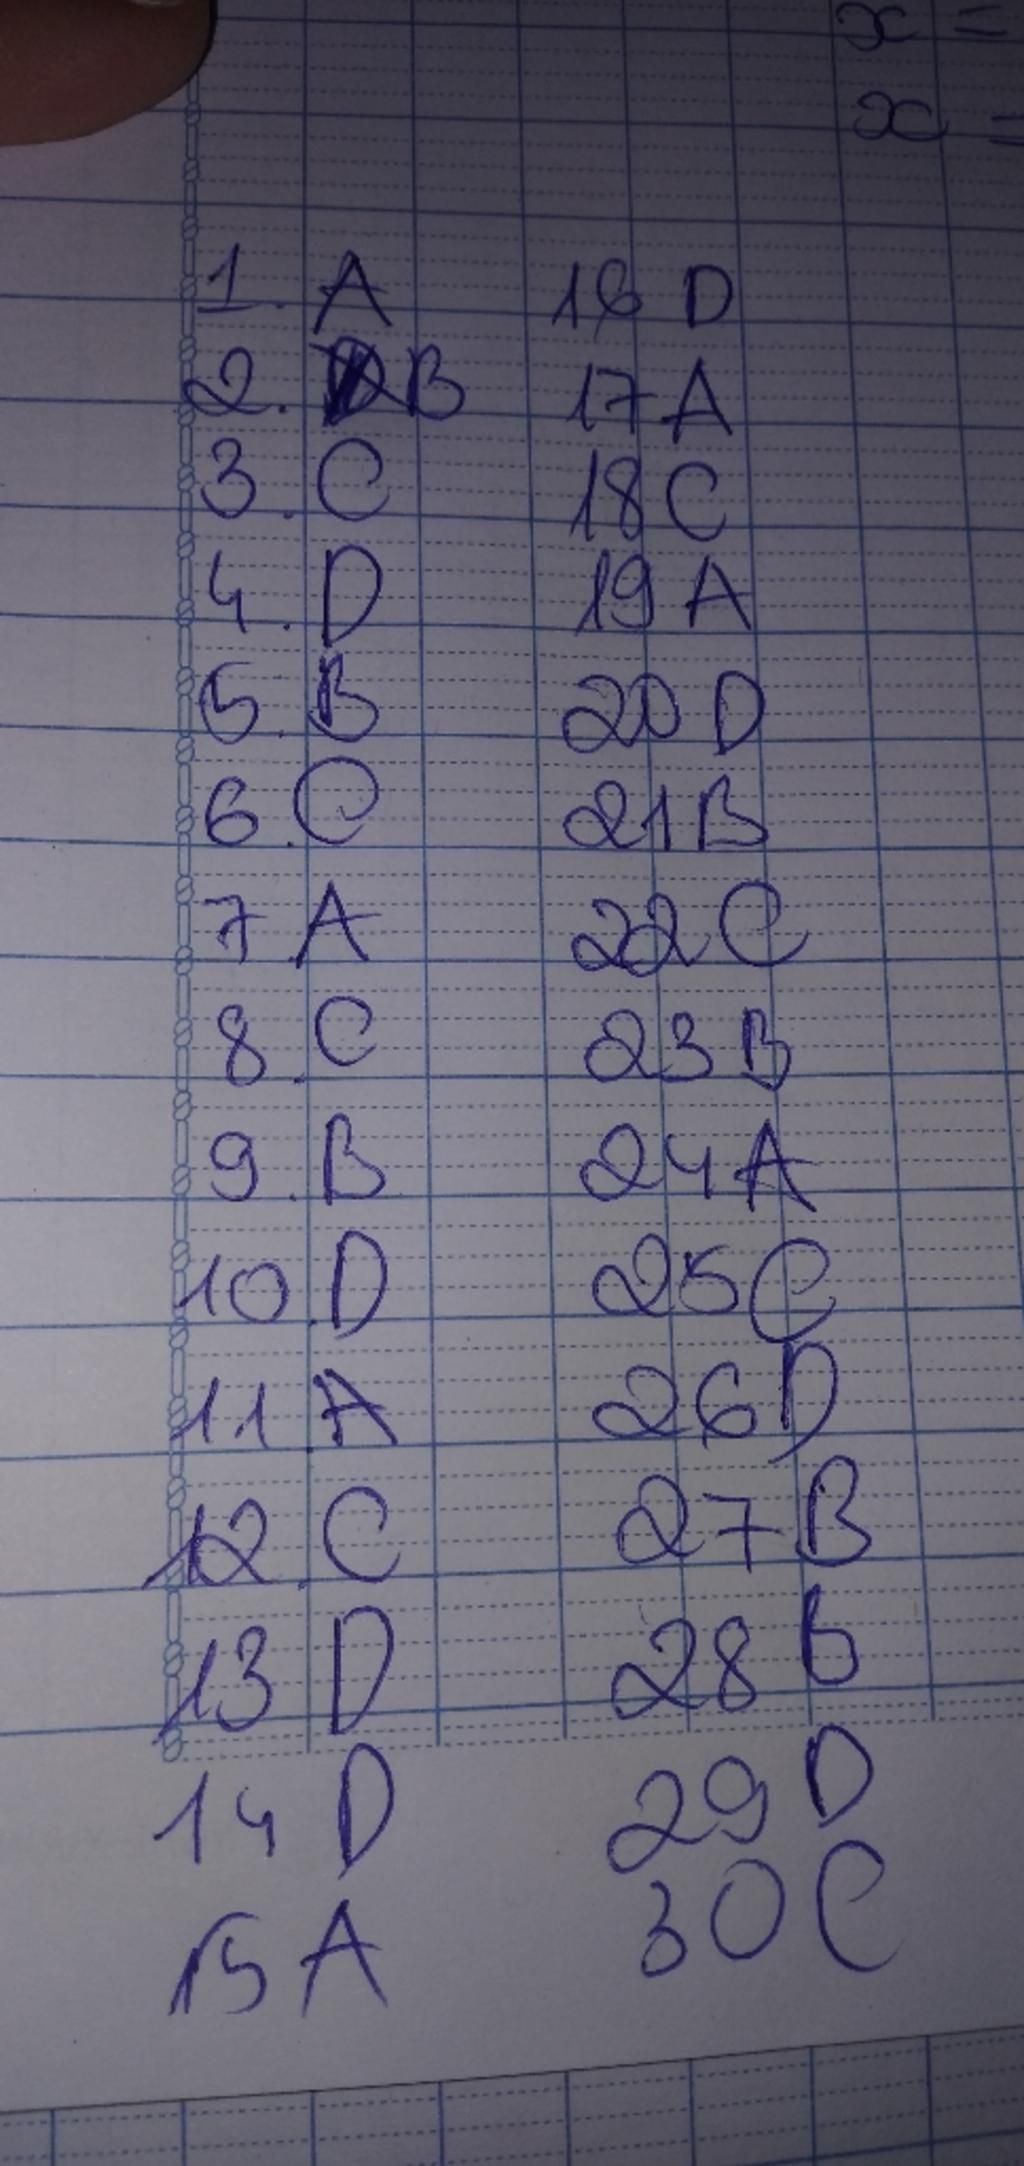 x =
x =
1. A
2. B
3. C
4. D
5. B
6. C
7 A
8. C
9. B
10. D
11. A
12. C
13 D
14 D
15 A
16 D
17 A
18 C
19 A
20 D
21 B
22 C
23 B
24 A
25 C
26 D
27 B
28 B
29 D
30 C